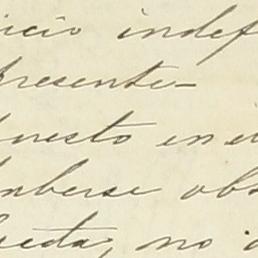 icio indef
presente
puesto en el
haberse obs
recta, no o